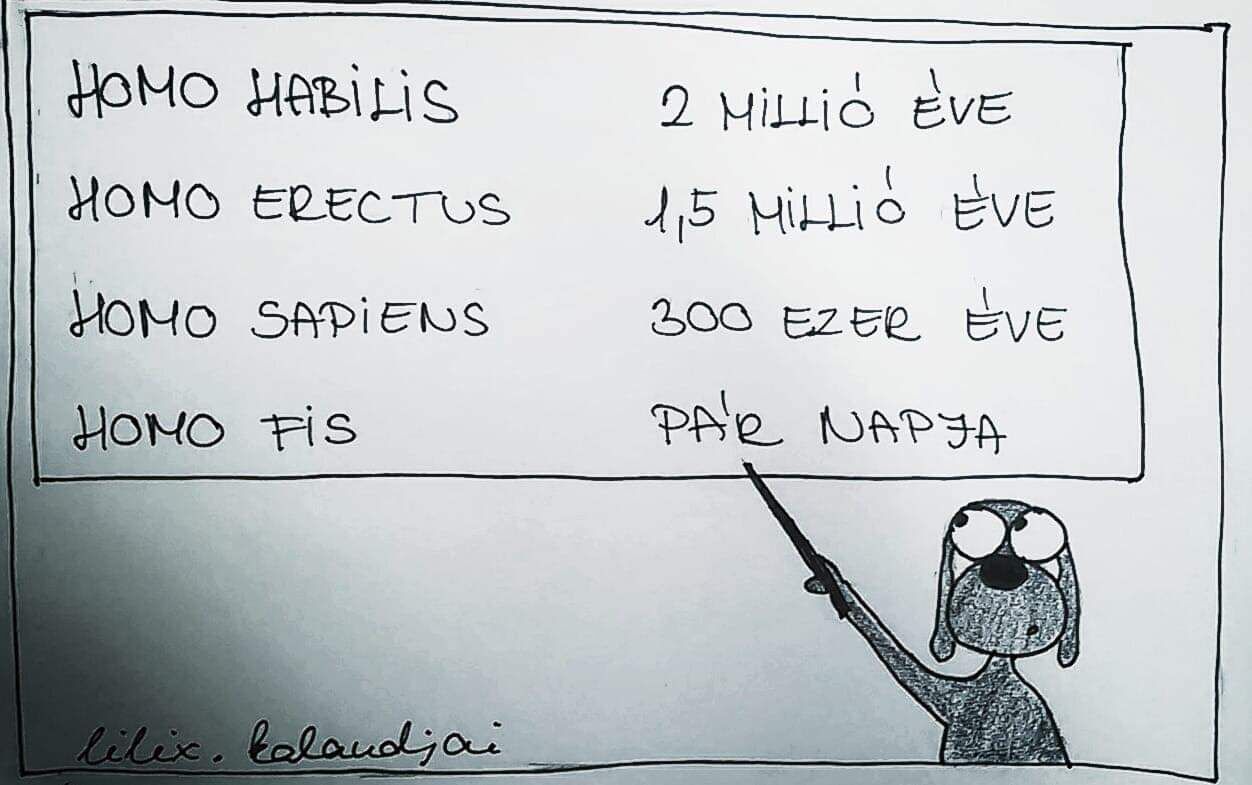 HOMO HABILIS 2 MILLIÓ ÉVE
HOMO ERECTUS 1,5 MILLIÓ ÉVE
HOMO SAPIENS 300 EZER ÉVE
HOMO FIS PÁR NAPJA
lilix.kalaudjai